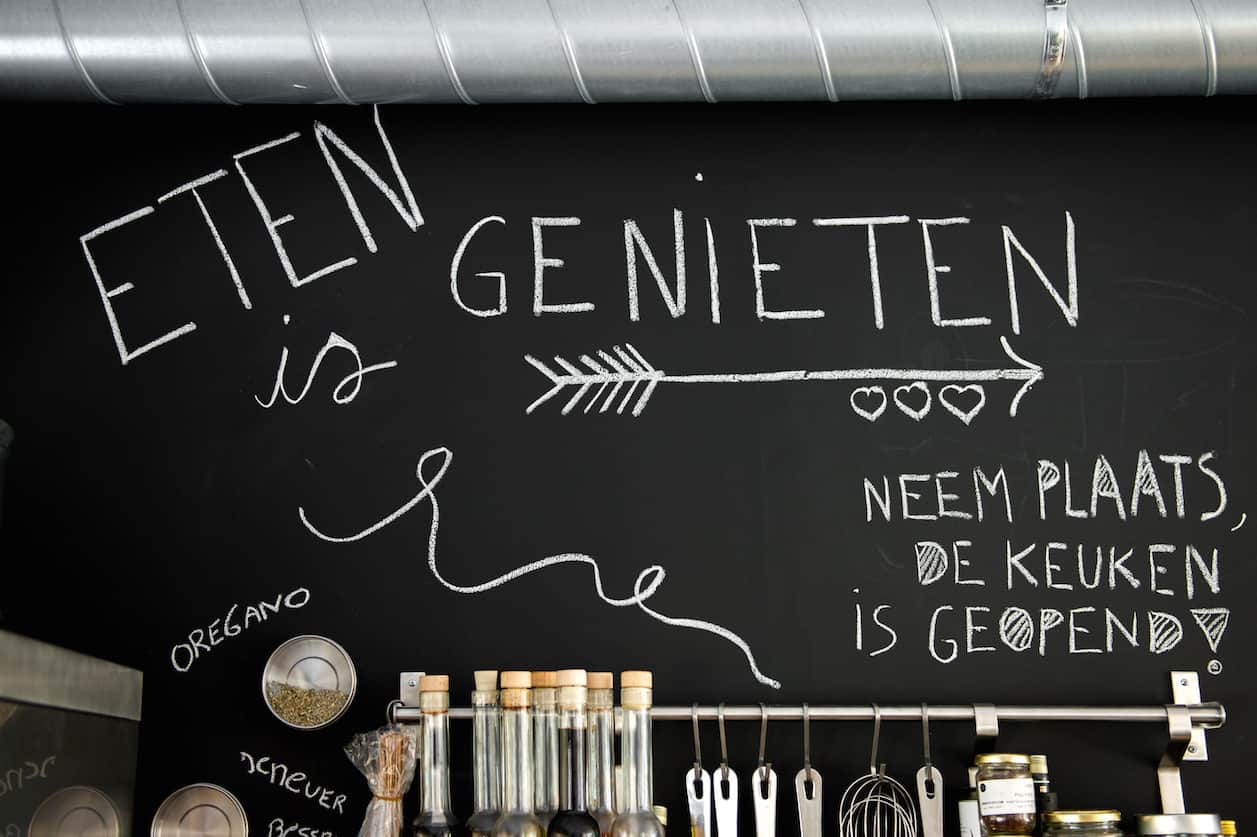 ETEN
is
GENiETEN
NEEM PLAATS,
DE KEUKEN
iS GEOPEND!
OREGANO
JENEVER